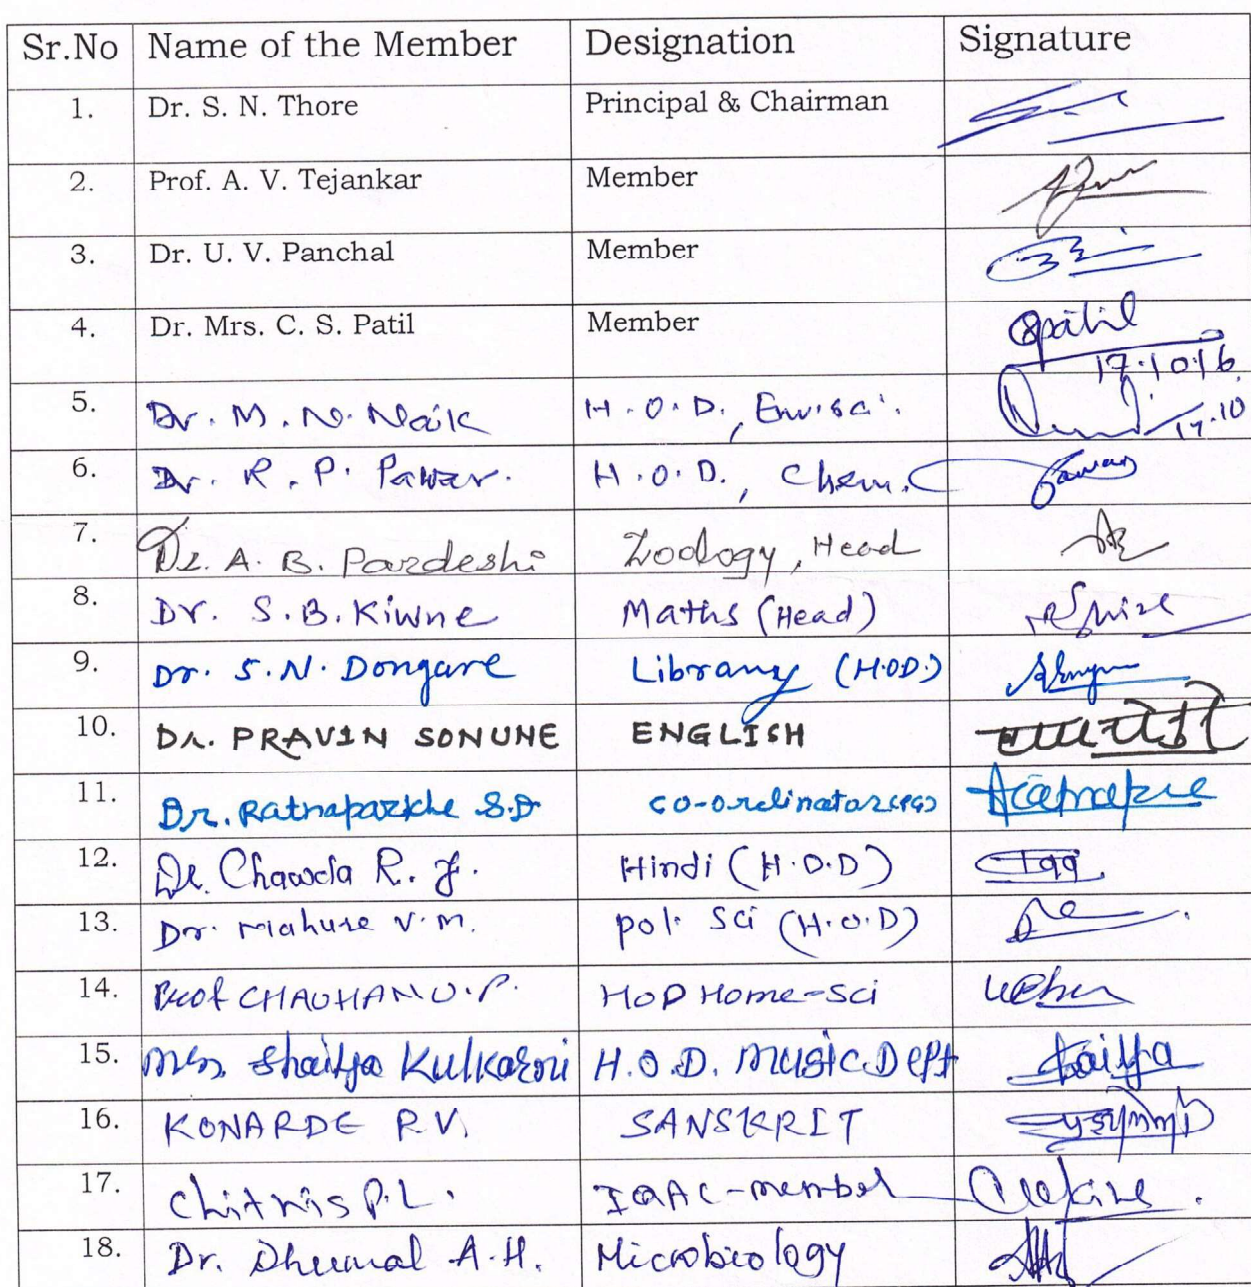 Sr.No Name of the Member Designation Signature
1. Dr. S. N. Thore Principal & Chairman
2. Prof. A. V. Tejankar Member
3. Dr. U. V. Panchal Member
4. Dr. Mrs. C. S. Patil Member Spatil
17.10.16
5. Dr. M. N. Naik H.O.D., Envi.sci. 17.10
6. Dr. R. P. Pawar. H.O.D., Chem. Pawar
7. Dr. A. B. Pardeshi Zoology, Head
8. Dr. S.B. Kiwne Maths (Head)
9. Dr. S.N. Dongare Library (H.O.D.)
10. DR. PRAVIN SONUNE ENGLISH
11. Dr. Ratnaparkhe S.D co-ordinator (PG)
12. Dr. Chawda R. J. Hindi (H.O.D)
13. Dr. Mahure V.M. pol. Sci (H.O.D)
14. Prof CHAUHAN U.P. HOD Home-Sci
15. Mrs. Shailja Kulkarni H.O.D. Music Dept Shailja
16. KONARDE R.V. SANSKRIT
17. Chitnis P.L. IQAC-member
18. Dr. Dhumal A.H. Microbiology